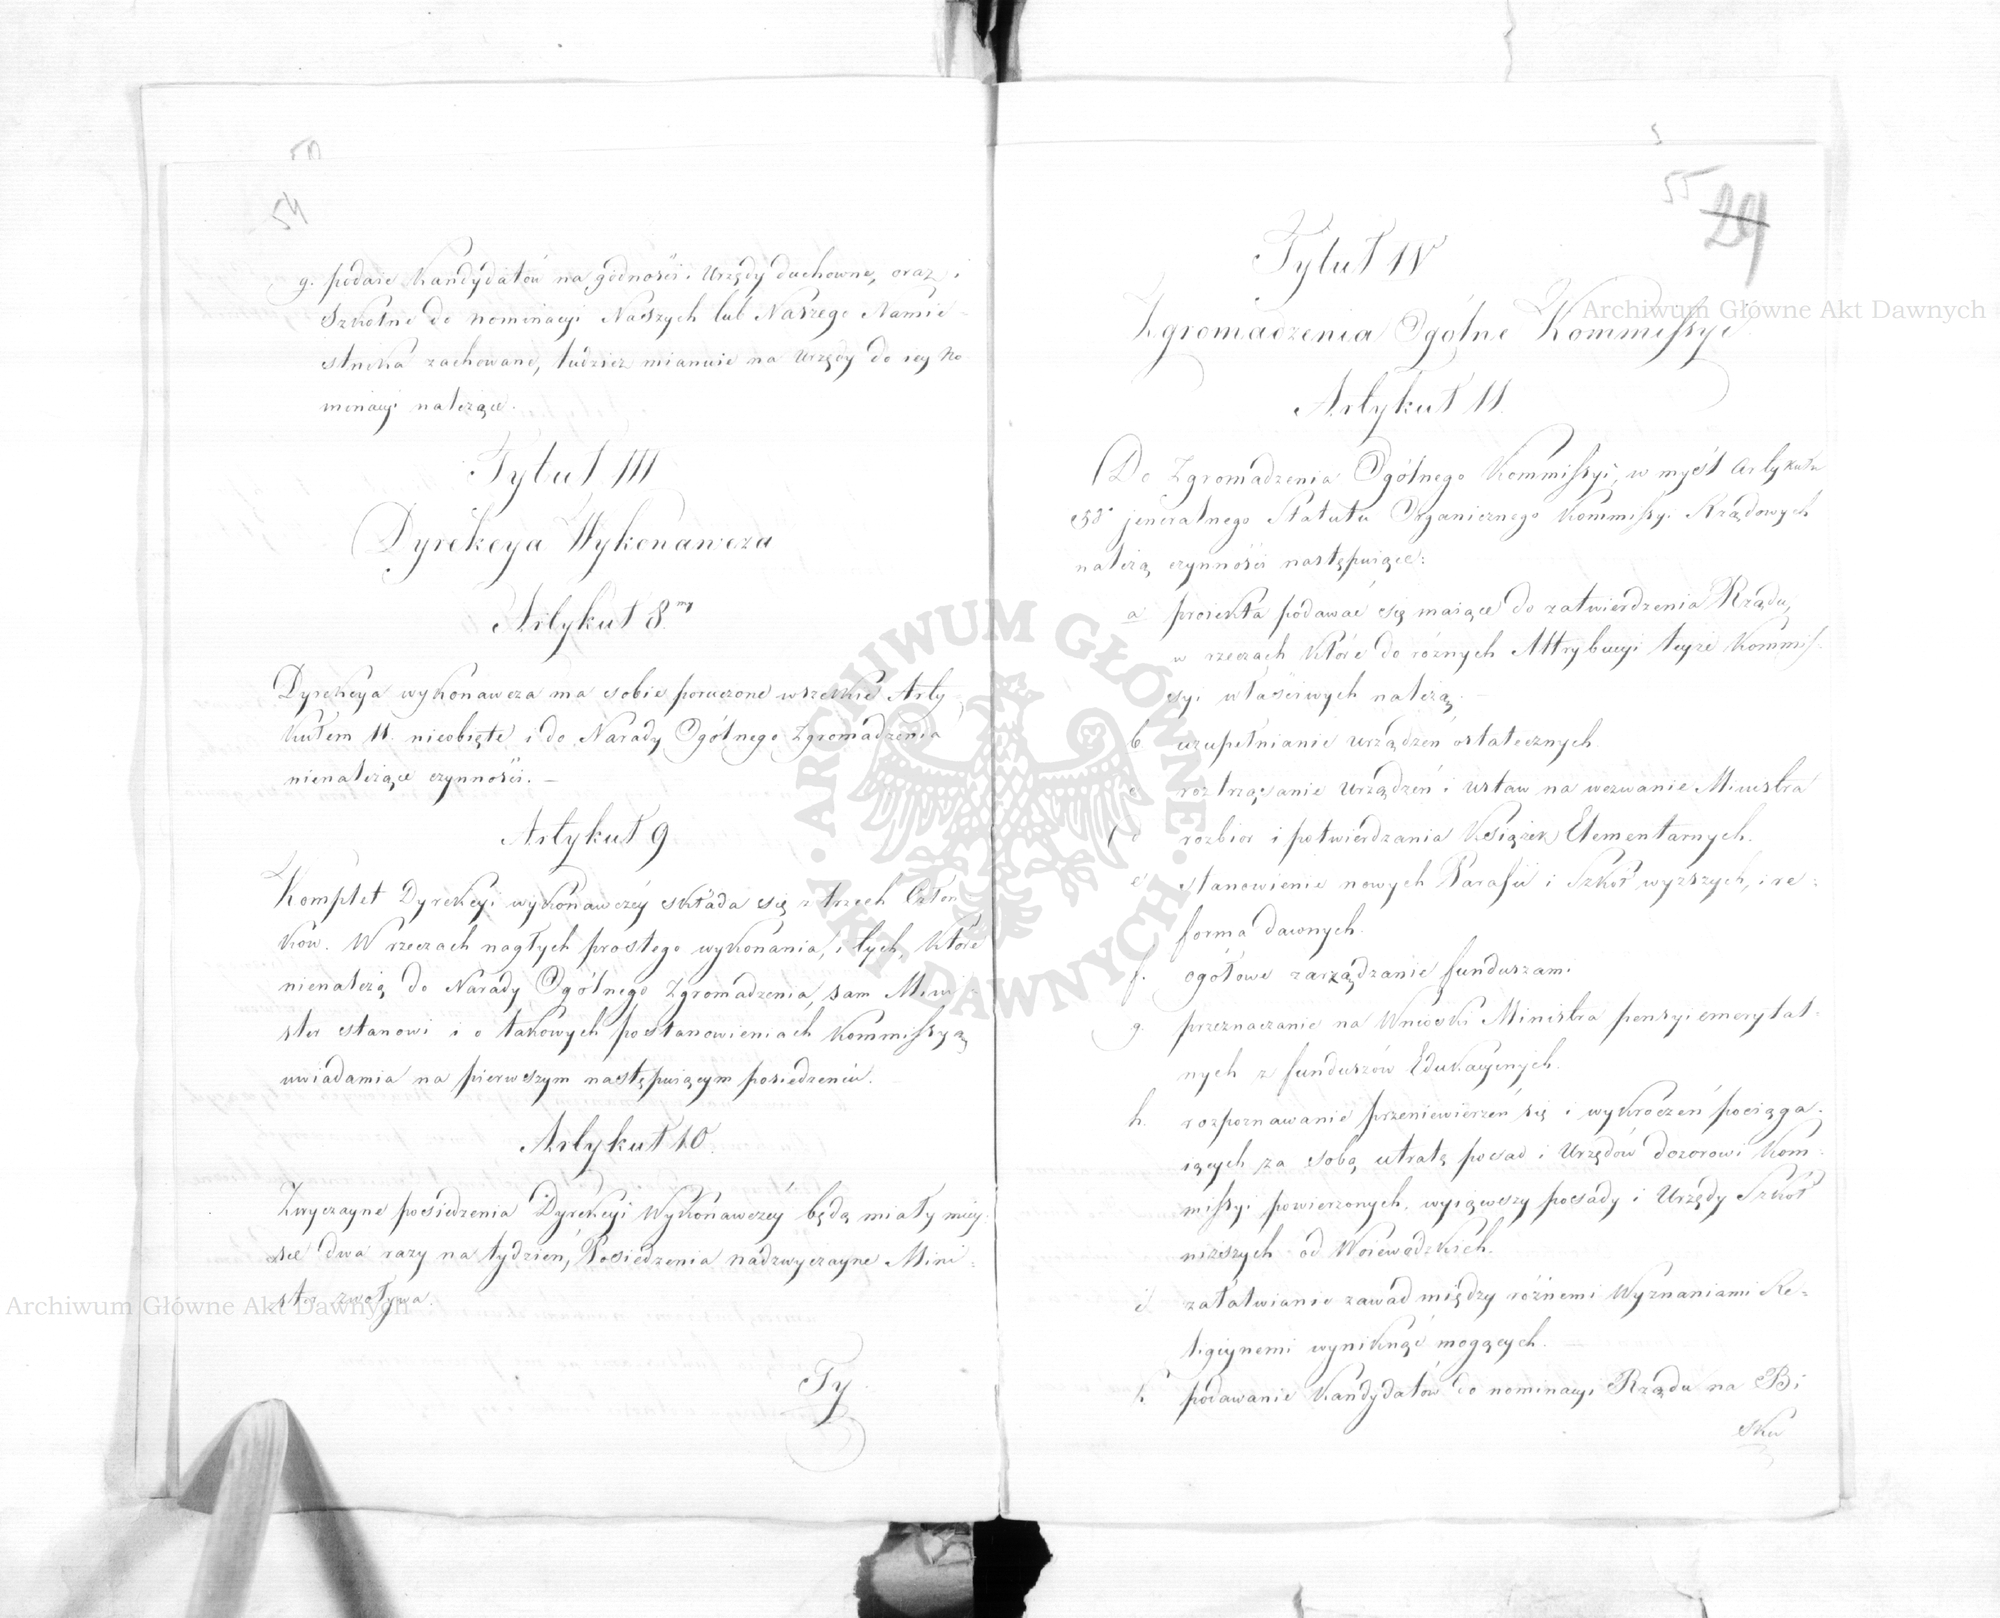 54
g. podaie Kandydatów na godności i Urzędy duchowne, oraz i
Szkolne do nominacyi Naszych lub Naszego Namie-
stnika zachowane, tudzież mianuie na Urzędy do iey no
minacyi należące.
Tytuł III
Dyrekcya Wykonawcza
Artykuł 8.my
Dyrekcya wykonawcza ma sobie poruczone wszelkie Arty
kułem 11. nieobięte i do Narady Ogólnego Zgromadzenia
nienależące czynności. —
Artykuł 9
Komplet Dyrekcyi wykonawczéy składa się z trzech Człon
ków. W rzeczach nagłych prostego wykonania, i tych, które
nienależą do Narady Ogólnego Zgromadzenia, sam Mini-
ster stanowi i o takowych postanowieniach Kommissyą
uwiadamia na pierwszym następuiącym posiedzeniu.
Artykuł 10.
Zwyczayne posiedzenia Dyrekcyi Wykonawczéy będą miały miey-
sce dwa razy na tydzień, Posiedzenia nadzwyczayne Mini-
ster zwoływa.
Ty
55
29
Tytuł IV
Zgromadzenia Ogólne Kommissyi
Artykuł 11.
Do Zgromadzenia Ogólnego Kommissyi, w myśl Artykułu
jeneralnego Statutu Organicznego Kommissyi Rządowych
należą czynności następuiące:
a proiekta podawać się maiące do zatwierdzenia Rządu,
w rzeczach które do różnych Attrybucyi teyże Kommis-
syi właściwych należą. —
b uzupełnianie urządzeń ostatecznych.
c roztrząsanie Urządzeń i Ustaw na wezwanie Ministra
d rozbior i potwierdzania Książek Elementarnych.
e stanowienie nowych Parafii i Szkół wyższych, i re-
forma dawnych.
f. ogółowe zarządzanie funduszami
g. przeznaczanie na Wnioski Ministra pensyi emerytal-
nych z funduszów Edukacyinych.
h. rozpoznawanie przeniewierzeń się i wykroczeń pociąga-
iących za sobą utratę posad i Urzędów dozorowi Kom-
missyi powierzonych, wyiąwszy posady i Urzędy Szkół
niższych od Woiewodzkich.
i. załatwianie zawad między różnemi Wyznaniami Re-
ligiynemi wyniknąć mogących.
k podawanie Kandydatów do nominacyi Rządu na Bi
sku
Archiwum Główne Akt Dawnych
Archiwum Główne Akt Dawnych
ARCHIWUM GŁÓWNE AKT DAWNYCH